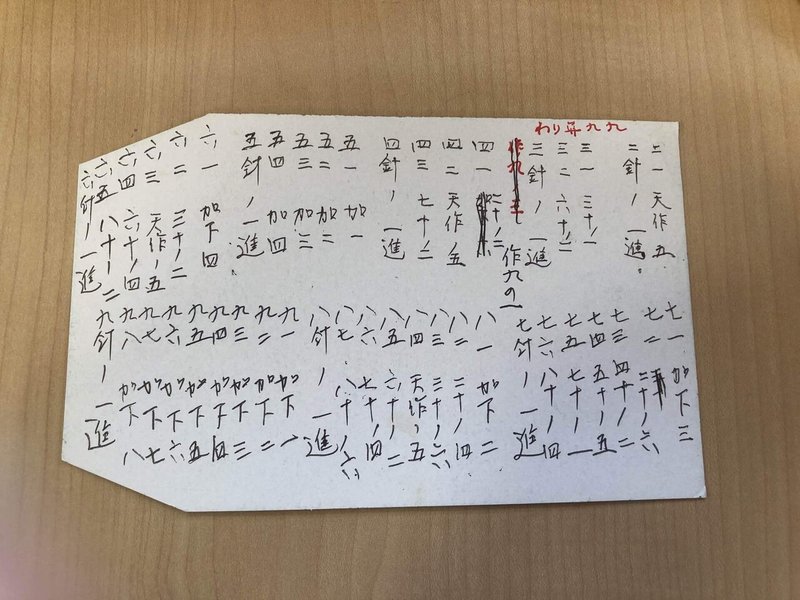 わり算九九
二一 天作五
二針 一進。
三一 三十ノ一
三二 六十ノ二
三針ノ一進
作九の一
四一 二十ノ二
四二 天作ノ五
四三 七十ノ二
四針ノ一進
五一 加一
五二 加二
五三 加三
五四 加四
五針ノ一進
六一 加下四
六二 三十ノ二
六三 天作ノ五
六四 六十ノ四
六五 八十ノ二
六針ノ一進
七一 加下三
七二 二十ノ六
七三 四十ノ二
七四 五十ノ五
七五 七十ノ一
七六 八十ノ四
七針ノ一進
八一 加下二
八二 二十ノ四
八三 三十ノ六
八四 天作ノ五
八五 六十ノ二
八六 七十ノ四
八七 八十ノ六
八針ノ一進
九一 加下一
九二 加下二
九三 加下三
九四 加下四
九五 加下五
九六 加下六
九七 加下七
九八 加下八
九針ノ一進